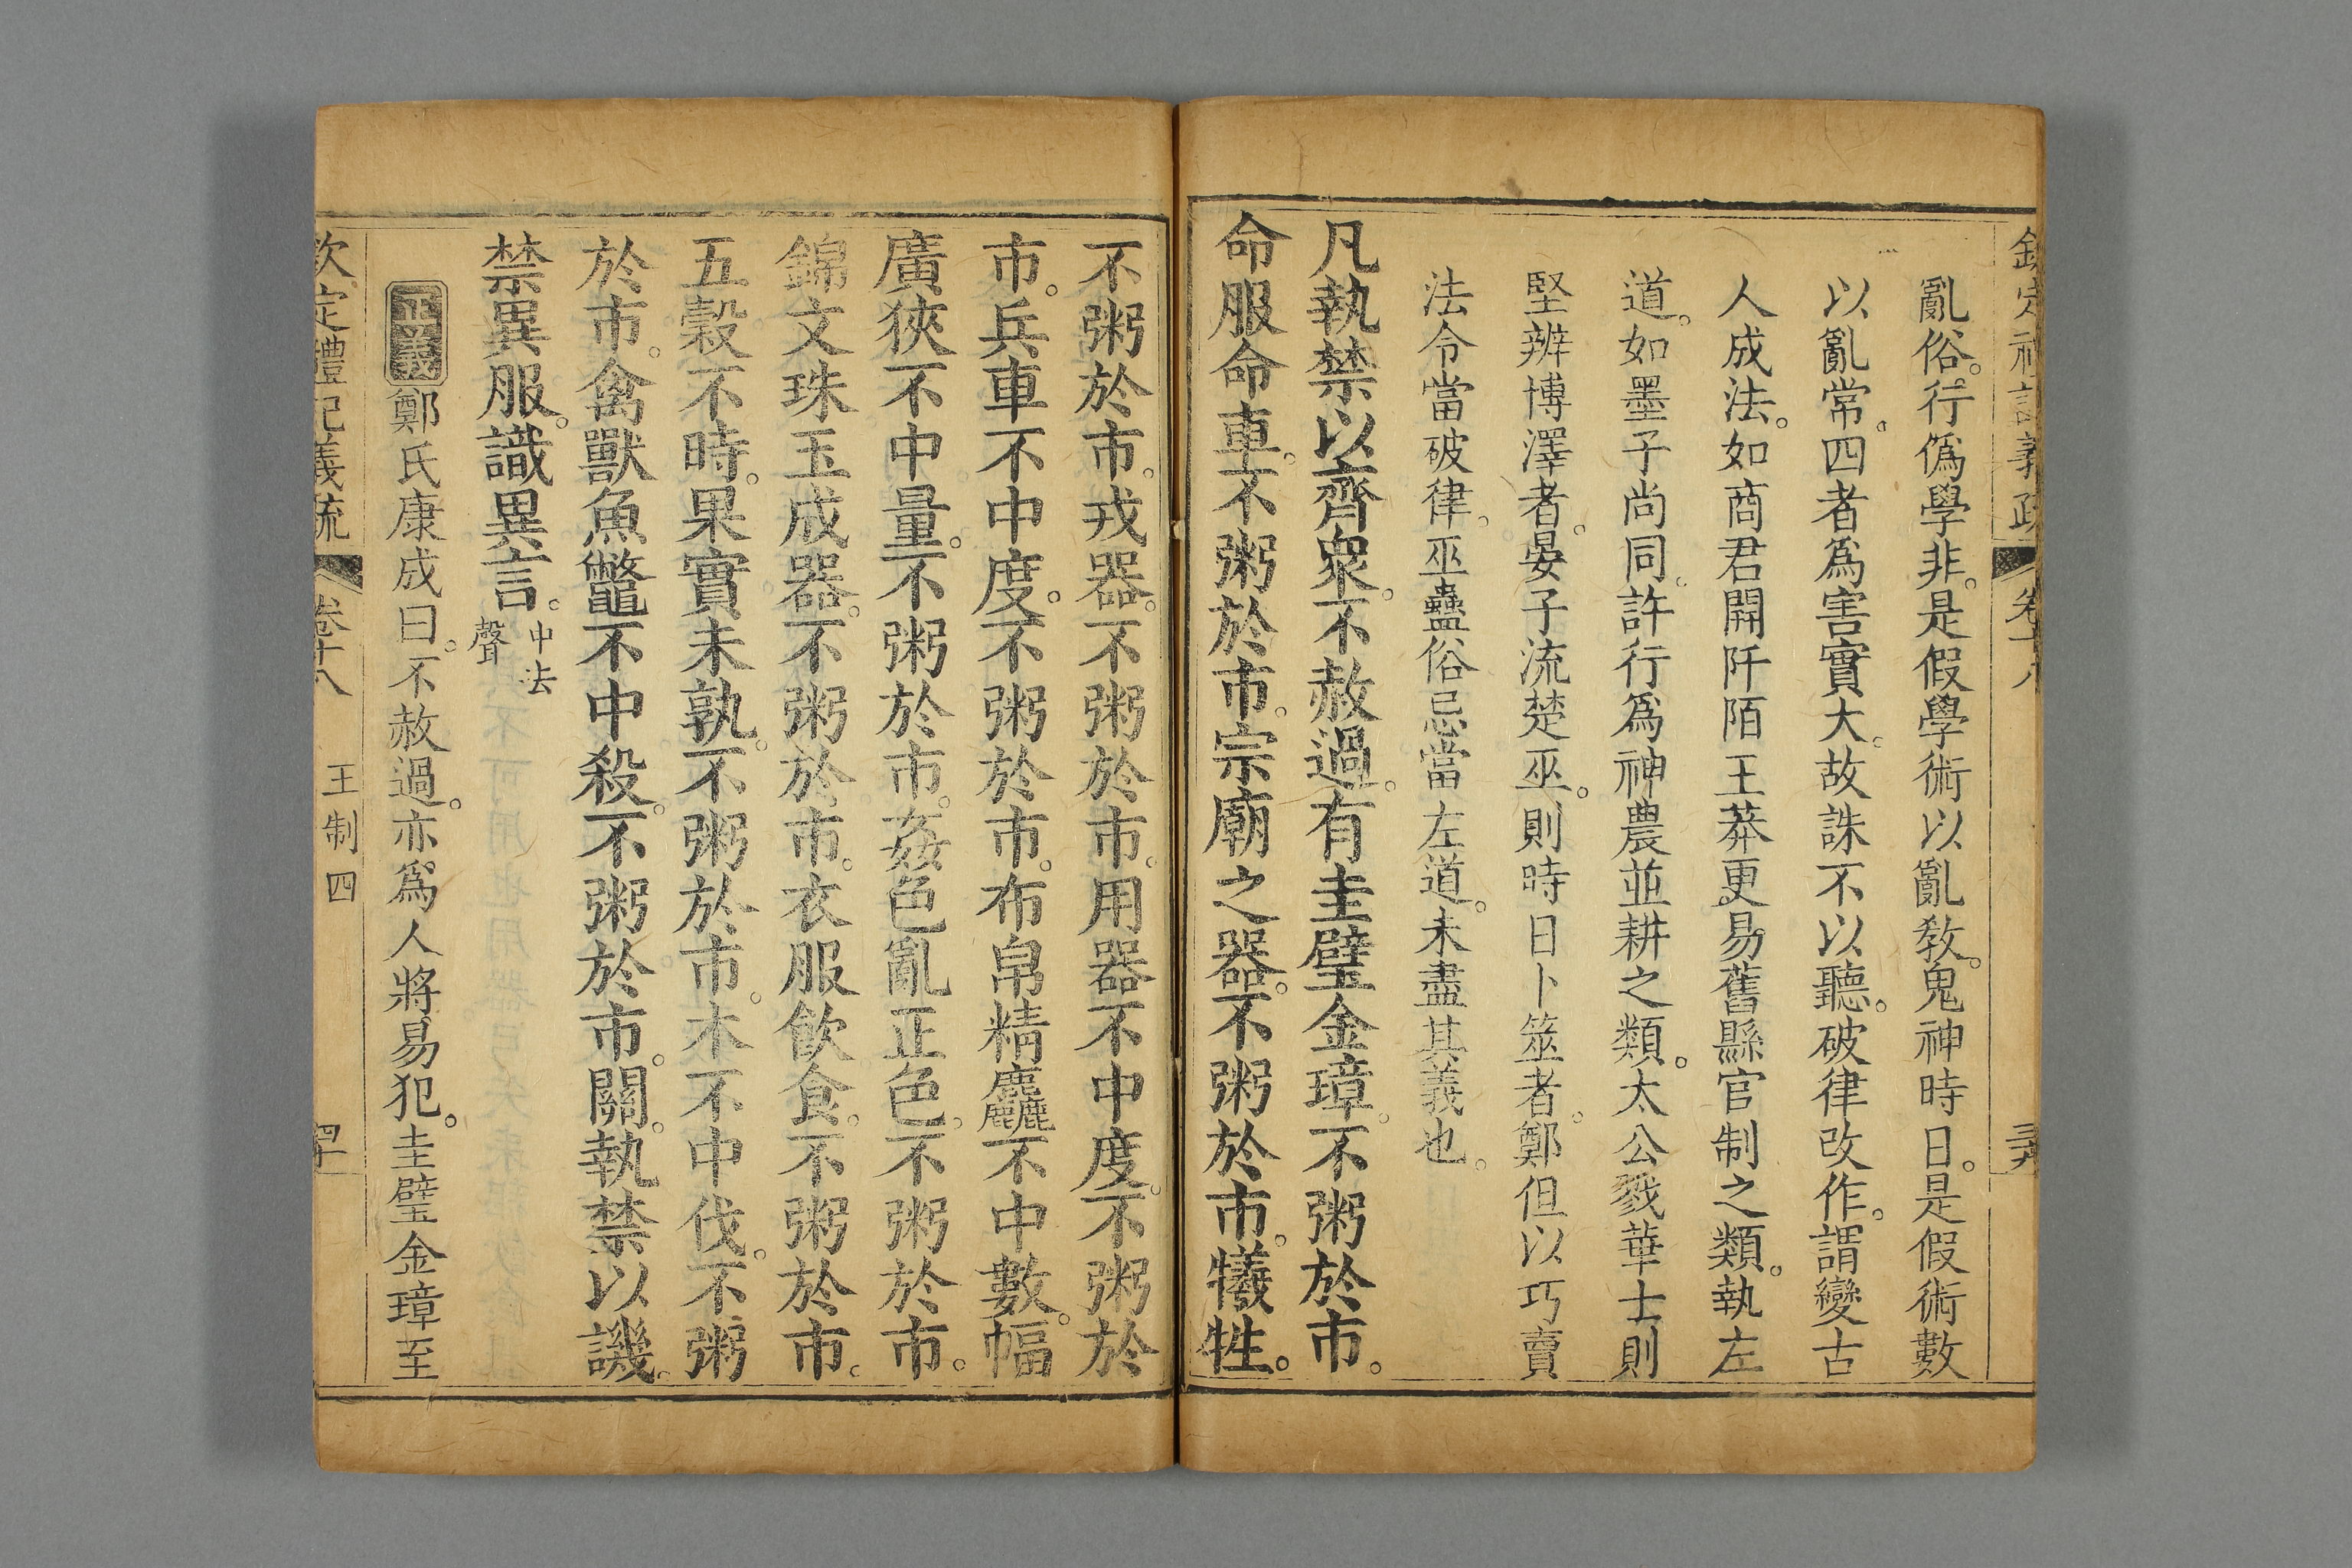 欽定禮記義疏 卷十八
亂俗。行僞學非。是假學術以亂敎。鬼神時日。是假術數
以亂常。四者爲害實大。故誅不以聽。破律改作。謂變古
人成法。如商君開阡陌王莽更易舊縣官制之類。執左
道。如墨子尚同。許行爲神農並耕之類。太公戮華士則
堅辨博澤者。晏子流楚巫。則時日卜筮者。鄭但以巧賣
法令當破律。巫蠱俗忌當左道。未盡其義也。
凡執禁以齊衆。不赦過。有圭璧金璋。不粥於市。
命服命車。不粥於市。宗廟之器。不粥於市。犧牲。
不粥於市。戎器。不粥於市。用器不中度。不粥於
市。兵車不中度。不粥於市。布帛精麤不中數。幅
廣狹不中量。不粥於市。姦色亂正色。不粥於市。
錦文珠玉成器。不粥於市。衣服飮食。不粥於市。
五穀不時。果實未孰。不粥於市。木不中伐。不粥
於市。禽獸魚鼈不中殺。不粥於市。關。執禁以譏。
禁異服。識異言。中去聲
正義鄭氏康成曰。不赦過。亦爲人將易犯。圭璧金璋至
欽定禮記義疏 卷十八 王制四